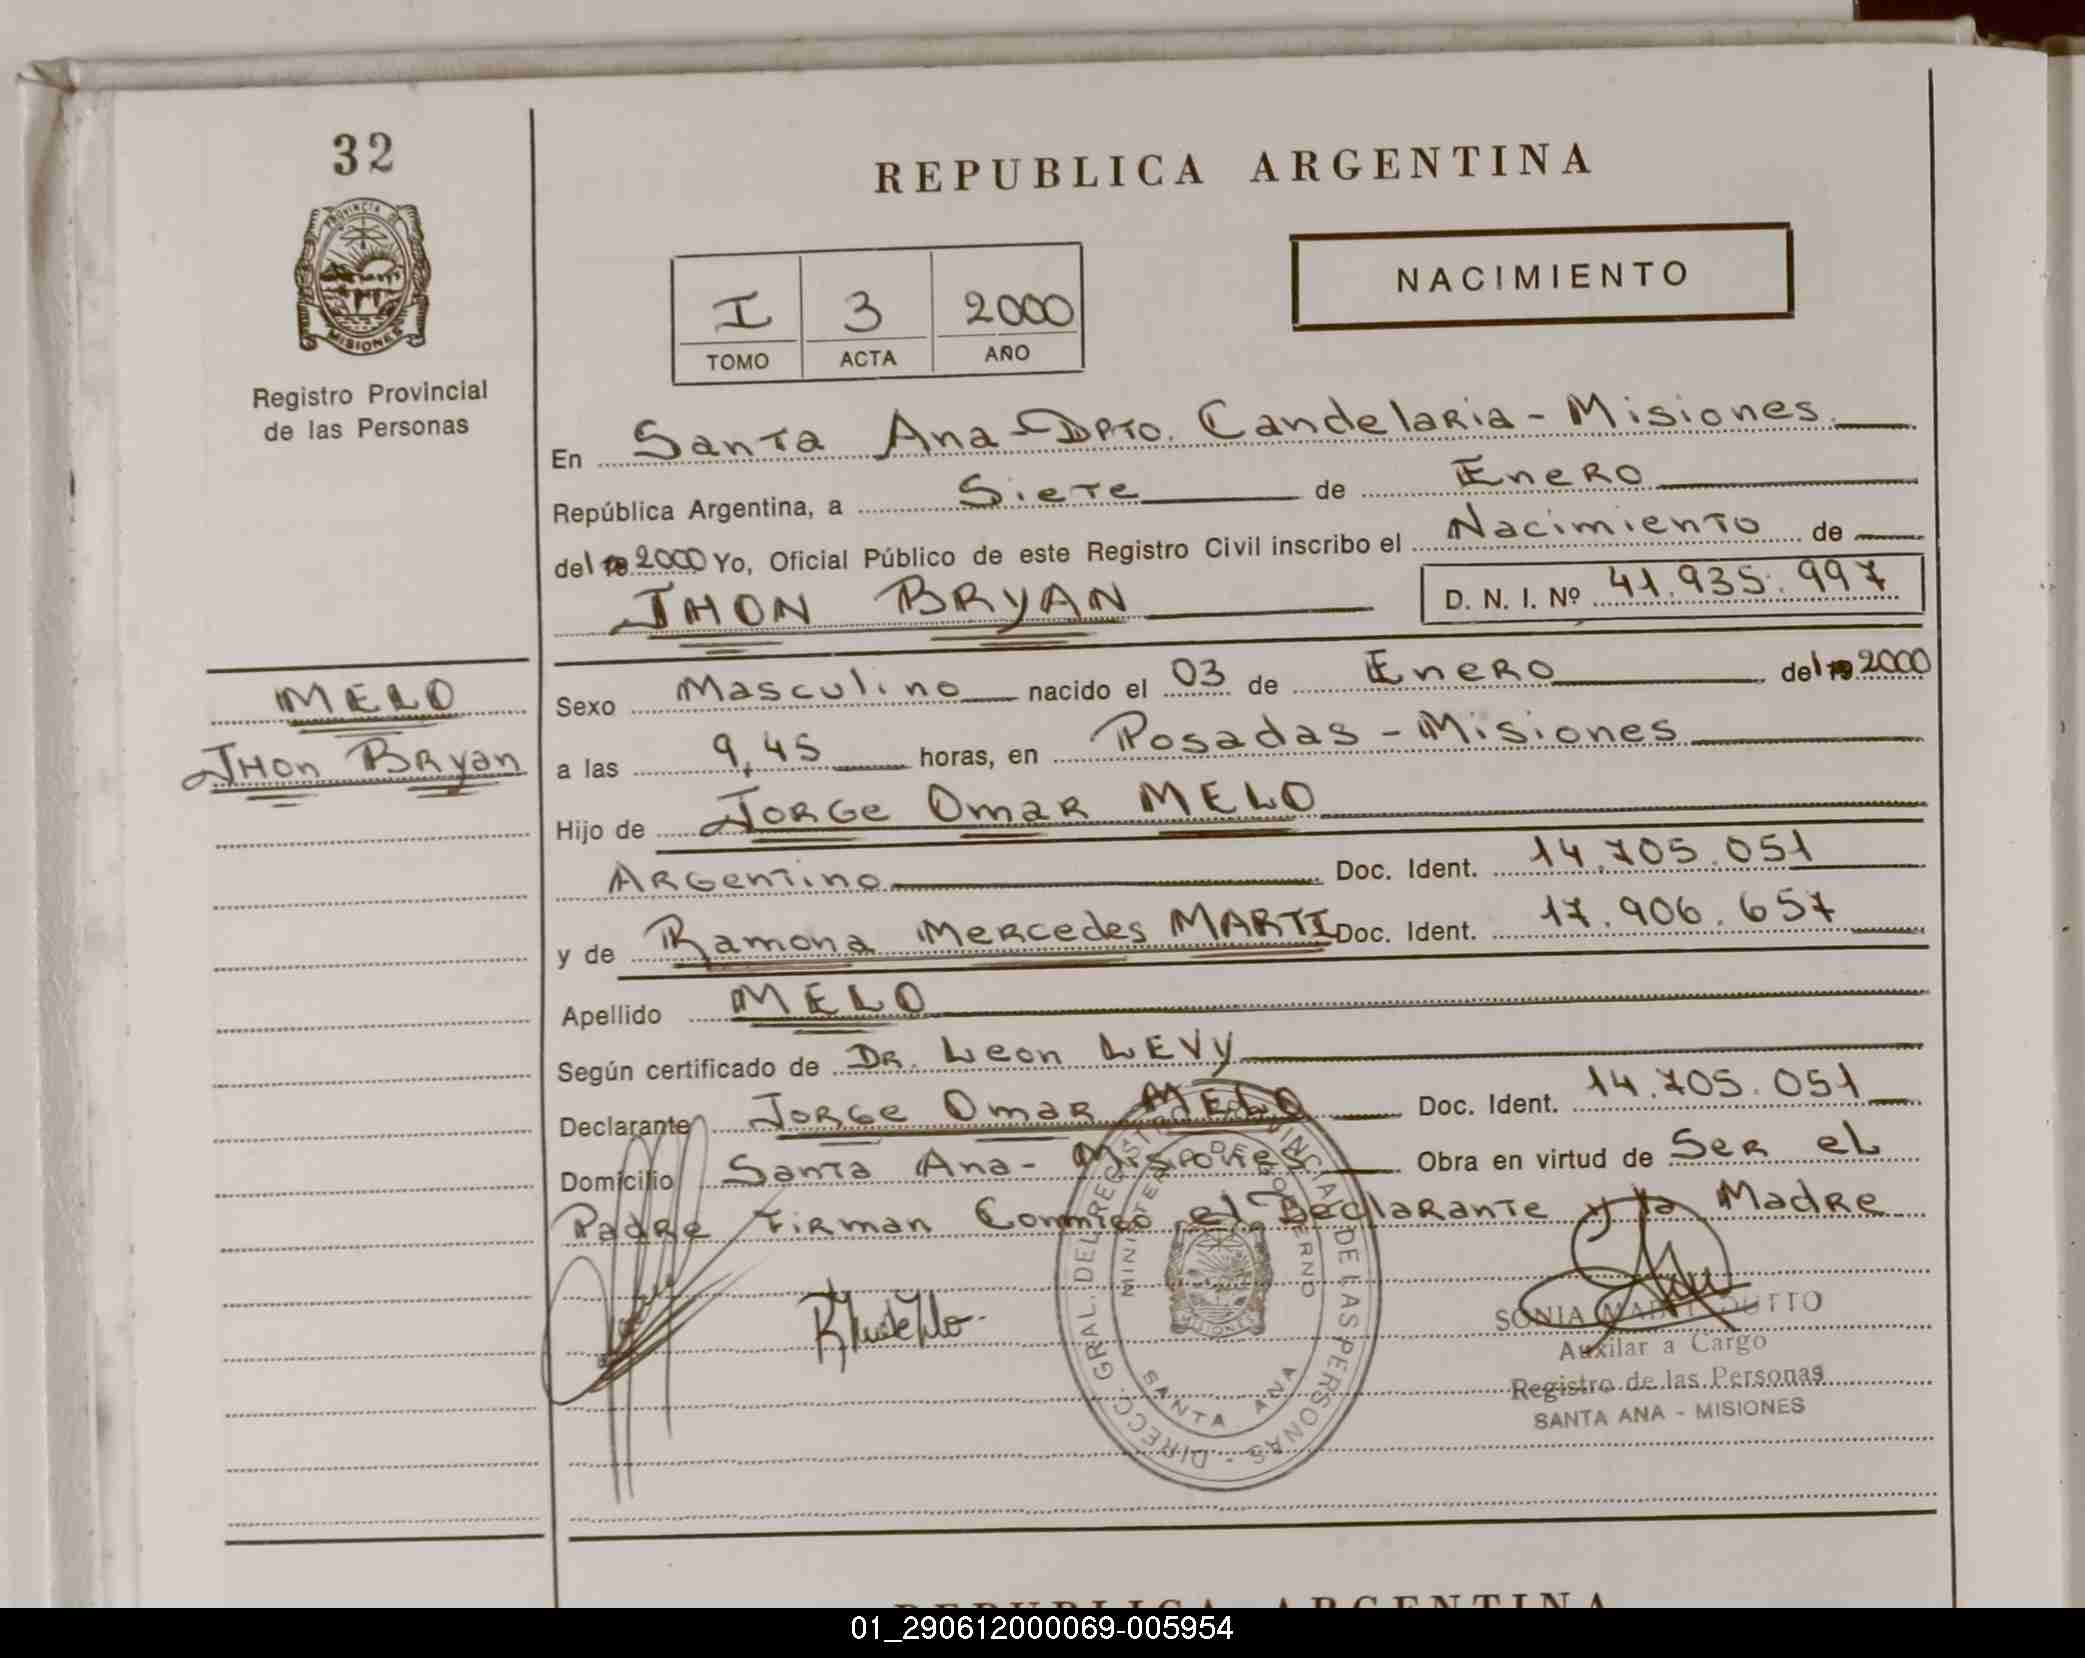 32
REPUBLICA ARGENTINA
PROVINCIA DE
MISIONES
Registro Provincial
de las Personas
I 3 2000
TOMO ACTA AÑO
NACIMIENTO
En Santa Ana - Dpto. Candelaria - Misiones.
República Argentina, a Siete de Enero
del 2000 Yo, Oficial Público de este Registro Civil inscribo el Nacimiento de
JHON BRYAN D. N. I. Nº 41.935.997
MELO
Jhon Bryan
Sexo Masculino nacido el 03 de Enero del 2000
a las 9,45 horas, en Posadas - Misiones
Hijo de Jorge Omar MELO
Argentino Doc. Ident. 14.705.051
y de Ramona Mercedes MARTI Doc. Ident. 17.906.657
Apellido MELO
Según certificado de Dr. Leon LEVY
Declarante Jorge Omar MELO Doc. Ident. 14.705.051
Domicilio Santa Ana - Misiones Obra en virtud de Ser el
Padre Firman Conmigo el Declarante y la Madre
DIRECC. GRAL. DEL REGISTRO PROVINCIAL DE LAS PERSONAS
MINISTERIO DE GOBIERNO
MISIONES
SANTA ANA
SONIA
Auxilar a Cargo
Registro de las Personas
SANTA ANA - MISIONES
REPUBLICA ARGENTINA
01_290612000069-005954